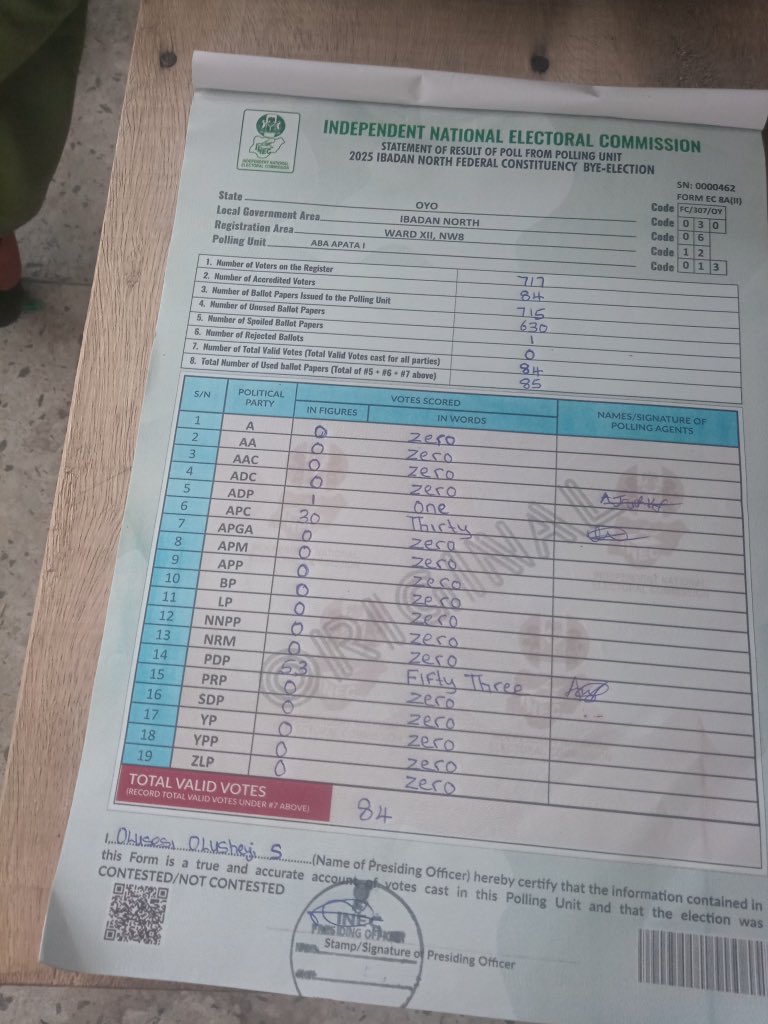 INDEPENDENT NATIONAL ELECTORAL COMMISSION
STATEMENT OF RESULT OF POLL FROM POLLING UNIT
2025 IBADAN NORTH FEDERAL CONSTITUENCY BYE-ELECTION
INEC
INDEPENDENT NATIONAL ELECTORAL COMMISSION
SN: 0000462
FORM EC 8A(II)
State OYO Code FC/307/OY
Local Government Area IBADAN NORTH Code 0 3 0
Registration Area WARD XII, NW8 Code 0 6
Polling Unit ABA APATA I Code 1 2
Code 0 1 3
1. Number of Voters on the Register 717
2. Number of Accredited Voters 84
3. Number of Ballot Papers Issued to the Polling Unit 715
4. Number of Unused Ballot Papers 630
5. Number of Spoiled Ballot Papers 1
6. Number of Rejected Ballots 0
7. Number of Total Valid Votes (Total Valid Votes cast for all parties) 84
8. Total Number of Used ballot Papers (Total of #5 + #6 + #7 above) 85
S/N POLITICAL PARTY VOTES SCORED NAMES/SIGNATURE OF POLLING AGENTS
IN FIGURES IN WORDS
1 A 0 zero
2 AA 0 zero
3 AAC 0 zero
4 ADC 0 zero
5 ADP 1 one
6 APC 30 Thirty
7 APGA 0 zero
8 APM 0 zero
9 APP 0 zero
10 BP 0 zero
11 LP 0 zero
12 NNPP 0 zero
13 NRM 0 zero
14 PDP 53 Fifty Three
15 PRP 0 zero
16 SDP 0 zero
17 YP 0 zero
18 YPP 0 zero
19 ZLP 0 zero
ORIGINAL
TOTAL VALID VOTES 84
(RECORD TOTAL VALID VOTES UNDER #7 ABOVE)
I, Olusesi Olusheyi S (Name of Presiding Officer) hereby certify that the information contained in
this Form is a true and accurate account of votes cast in this Polling Unit and that the election was
CONTESTED/NOT CONTESTED
INEC
PRESIDING OFFICER
Stamp/Signature of Presiding Officer